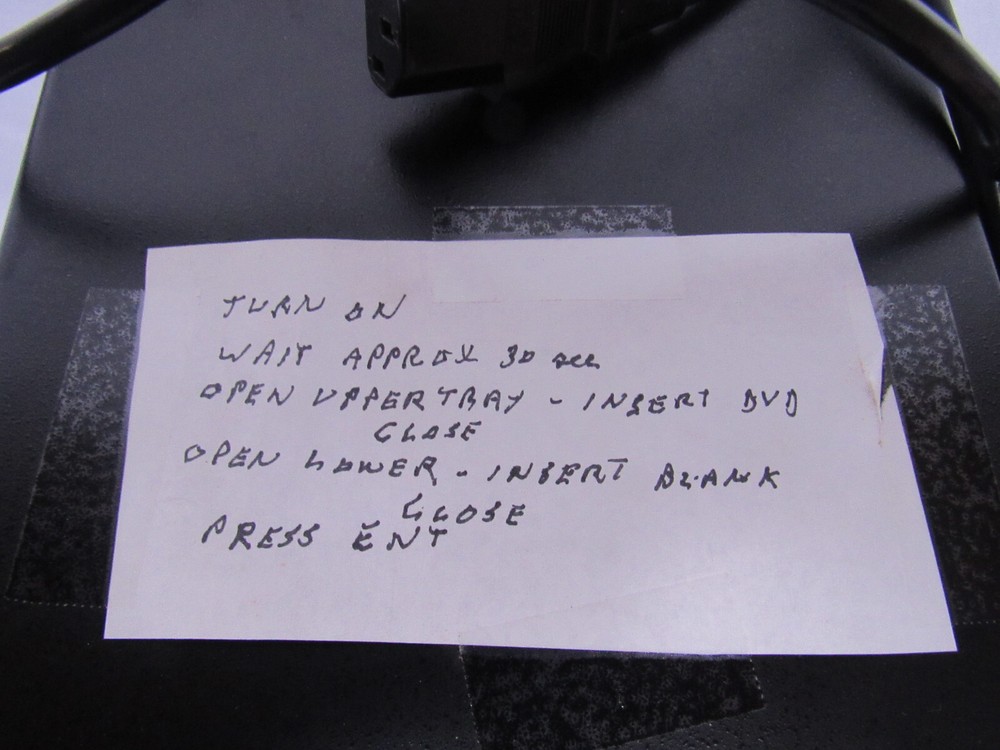 TURN ON
WAIT APPROX 30 sec
OPEN UPPER TRAY - INSERT DVD
CLOSE
OPEN LOWER - INSERT BLANK
CLOSE
PRESS ENT